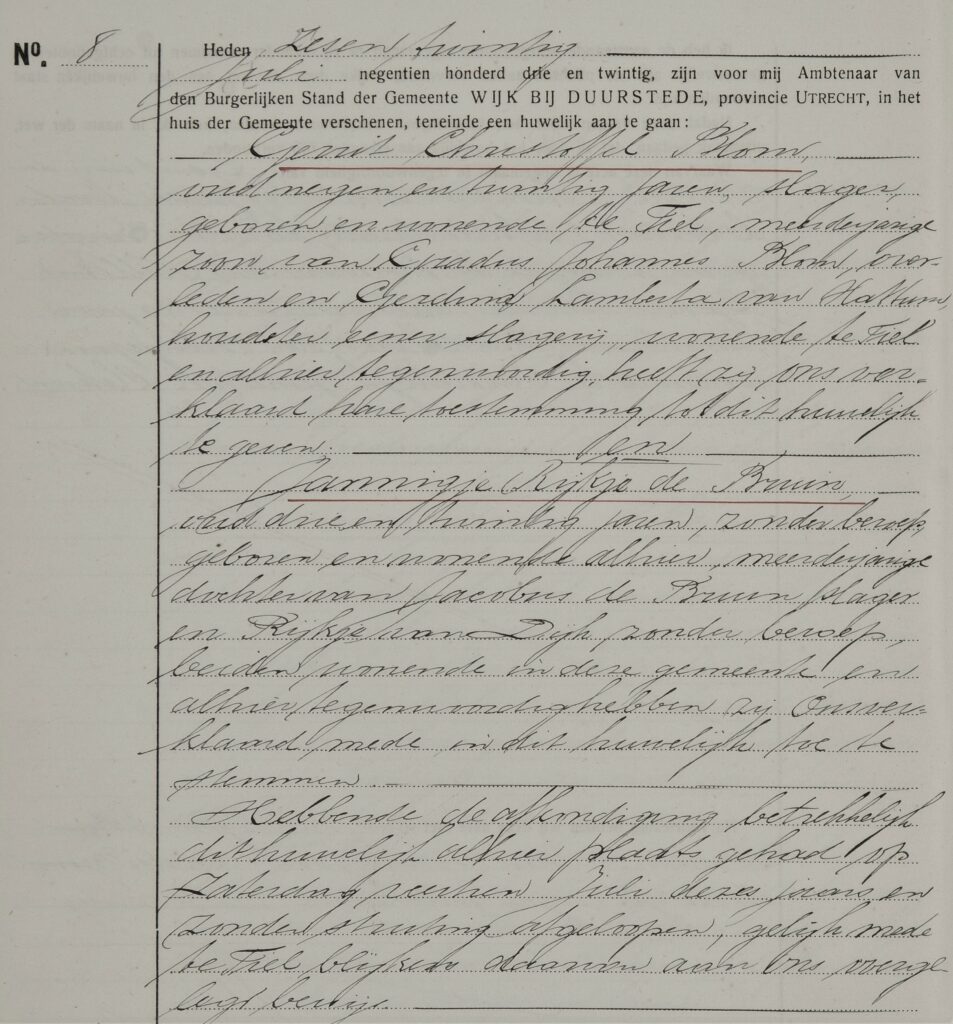 No. 8
Heden Zesentwintig
Juli negentien honderd drie en twintig, zijn voor mij Ambtenaar van
den Burgerlijken Stand der Gemeente WIJK BIJ DUURSTEDE, provincie UTRECHT, in het
huis der Gemeente verschenen, teneinde een huwelijk aan te gaan:
Gerrit Christoffel Blom,
oud negen en twintig jaren, slager,
geboren en wonende te Tiel, meerderjarige
zoon van Gradus Johannes Blom, over-
leden en Gerdina Lamberta van Hattum,
houdster eener slagerij, wonende te Tiel
en alhier tegenwoordig, heeft zij ons ver-
klaard hare toestemming tot dit huwelijk
te geven. en
Jannigje Rijkje de Bruin,
oud drie en twintig jaren, zonder beroep,
geboren en wonende alhier, meerderjarige
dochter van Jacobus de Bruin slager
en Rijkje van Dijk, zonder beroep,
beiden wonende in deze gemeente en
alhier tegenwoordig hebben zij Ons ver-
klaard mede in dit huwelijk toe te
stemmen.
Hebbende de afkondiging betrekkelijk
dit huwelijk alhier plaats gehad op
Zaterdag veertien Juli dezes jaars en
zonder stuiting afgeloopen, gelijk mede
te Tiel blijkens daarvan aan Ons overge
legd bewijs.